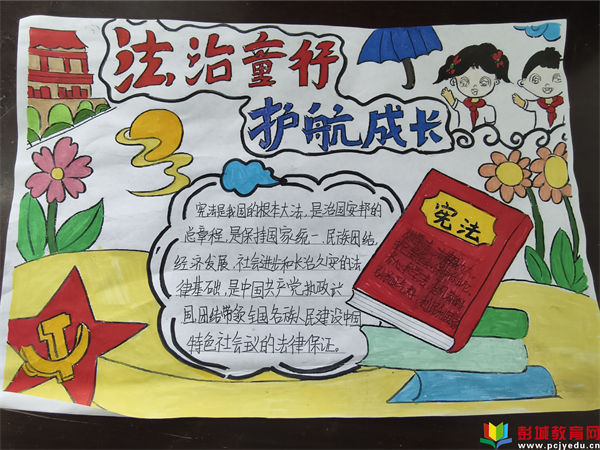 法治童行
护航成长
宪法是我国的根本大法，是治国安邦的
总章程，是保持国家统一、民族团结、
经济发展、社会进步和长治久安的法
律基础，是中国共产党执政兴
国、团结带领全国各族人民建设中国
特色社会议的法律保证。
宪法
彭城教育网
www.pcjyedu.cn